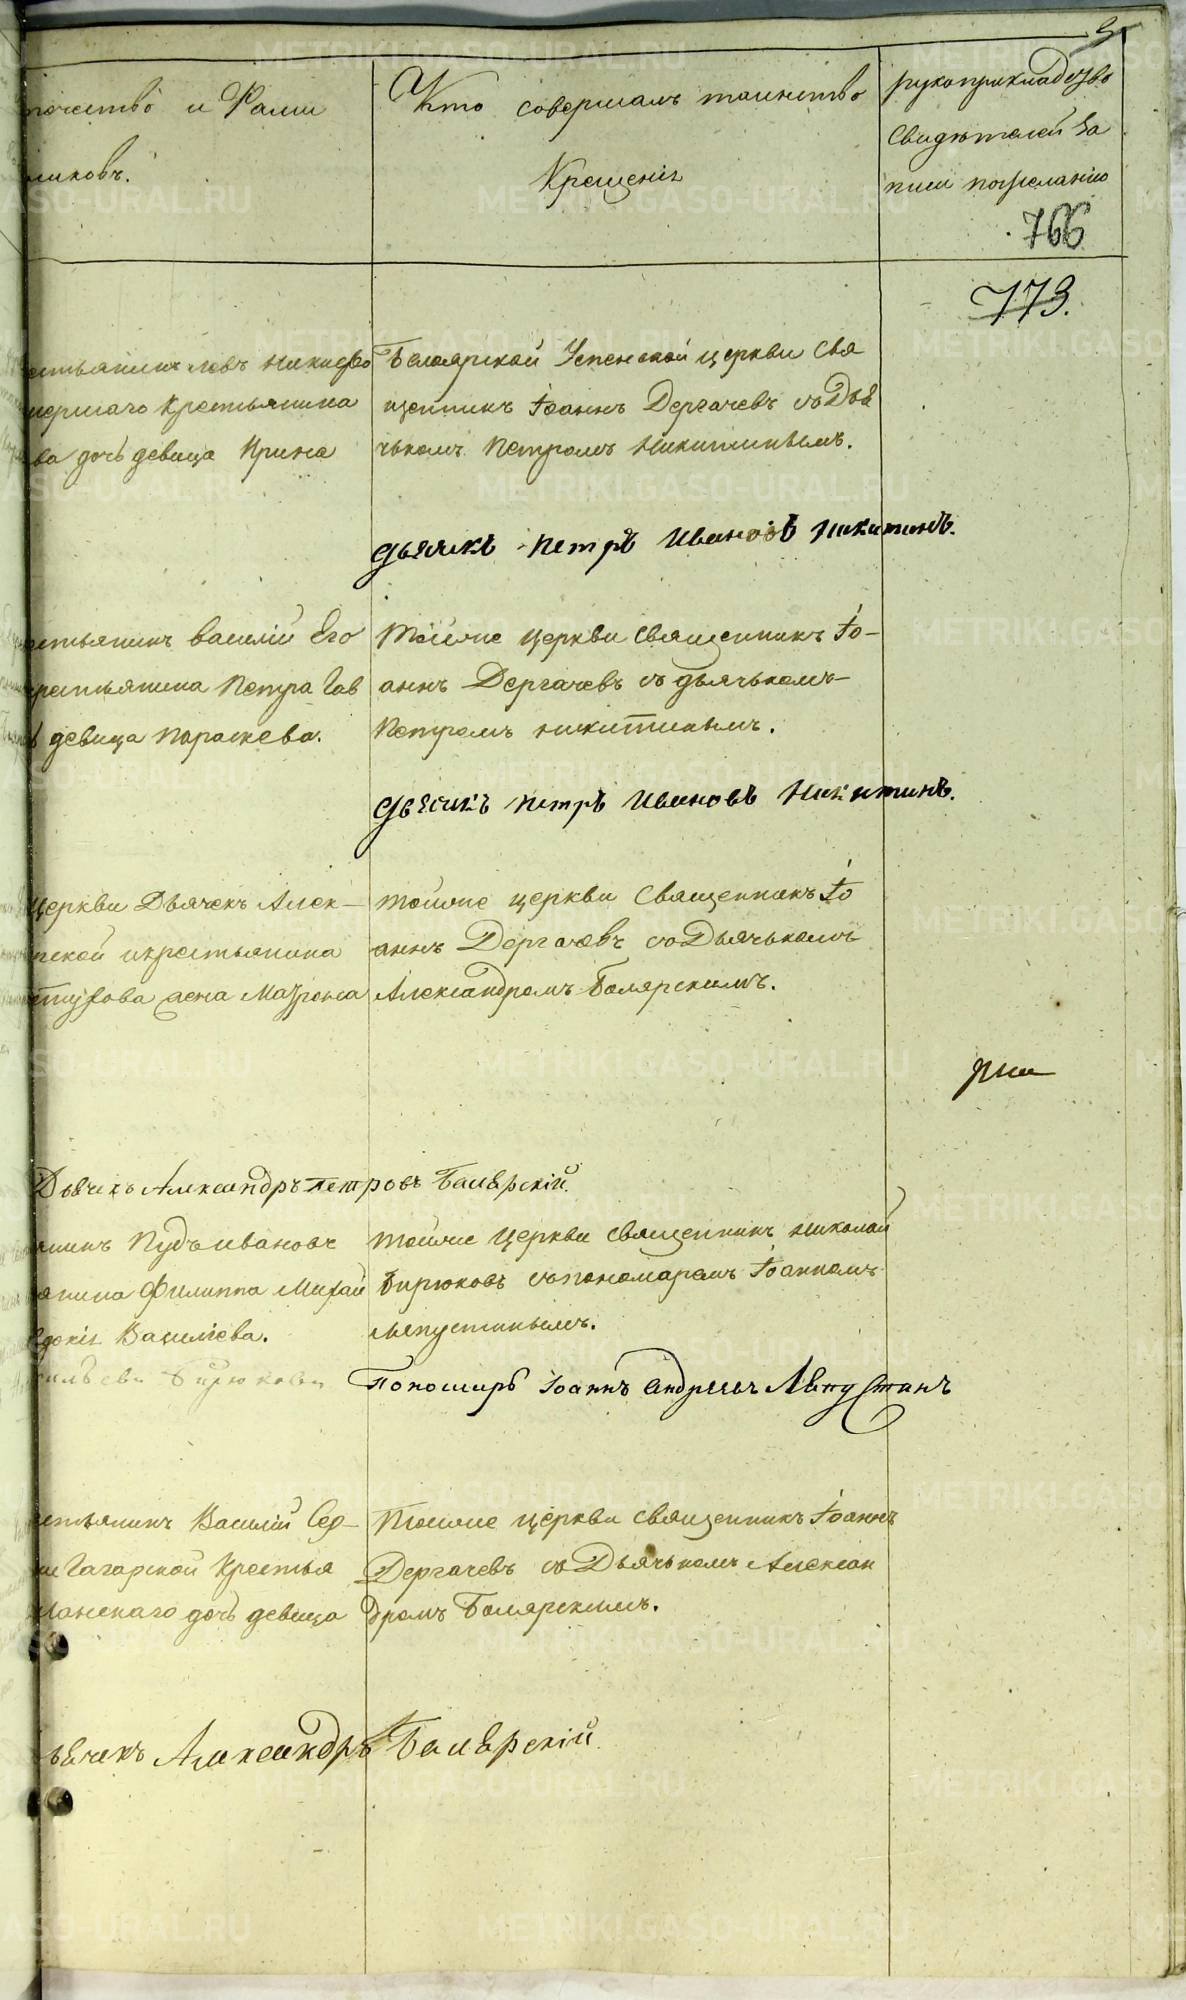 3
отчество и Фами
никовъ.
Кто совершалъ таинство
Крещенія
рукоприкладство
Свидѣтелей за
писи по желанію
766
773.
естьянинъ левъ Никифо
мершаго Крестьянина
ва дочь девица Ирина
Белоярской Успенской церкви Свя
щенникъ Іоаннъ Дергачевъ съ Дья
чькомъ Петромъ Никитинымъ.
дьячекъ Петръ Ивановъ Никитинъ.
естьянинъ Василій Его
крестьянина Петра Гав
девица Параскева.
тойже церкви Священникъ Іо-
аннъ Дергачевъ съ дьячькомъ
Петромъ Никитинымъ.
дьячикъ Петръ Ивановъ Никитинъ.
Церкви Дьячекъ Алек-
рской и крестьянина
жена Матрона
тойже церкви Священникъ Іо
аннъ Дергачевъ съ Дьячькомъ
Александромъ Боярскимъ.
Дьячекъ Александръ Петровъ Баярскій.
нинъ Пудъ Ивановъ
янина Филиппа Михай
вдокія Василіева.
Бирюковъ
тойже Церкви Священникъ Николай
Бирюковъ съ пономаремъ Іоанномъ
Ляпустинымъ.
Пономарь Іоаннъ Андреевъ Ляпустинъ
естьянинъ Василій Сер-
Гагарской Крестья
ланскаго дочь девица
Тойже церкви Священникъ Іоаннъ
Дергачевъ съ Дьячькомъ Алексан
дромъ Боярскимъ.
ьячекъ Александръ Баярскій